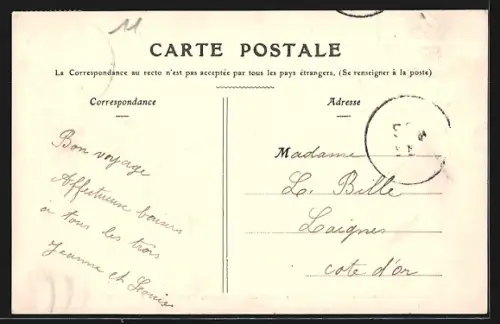 11
CARTE POSTALE
La Correspondance au recto n'est pas acceptée par tous les pays étrangers. (Se renseigner à la poste)
Correspondance
Adresse
Bon voyage
Affectueux baisers
à tous les trois
Jeanne et Louis
Madame
L. Bille
Laignes
cote d'or